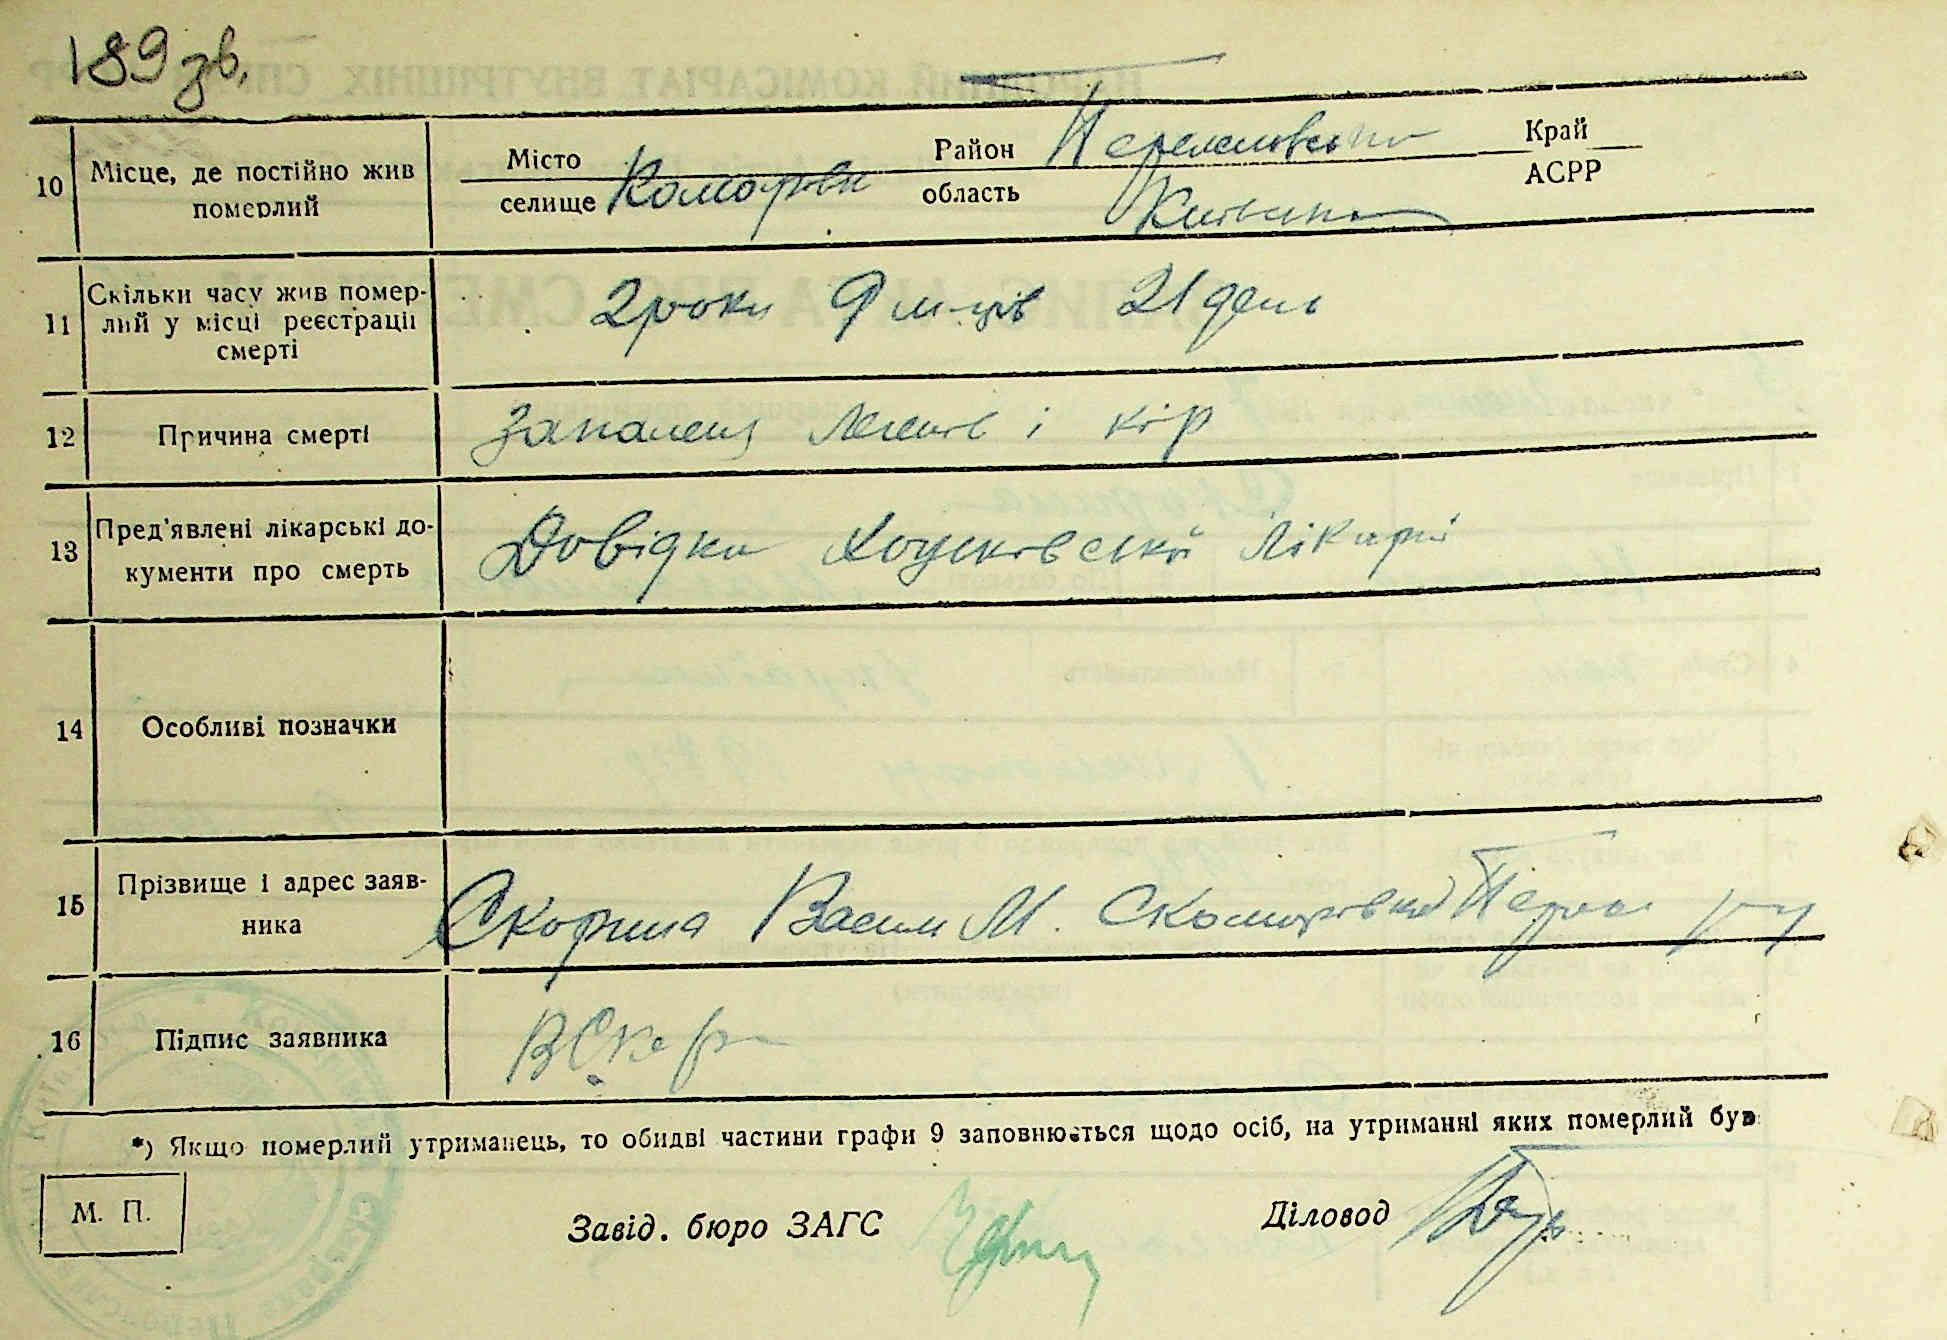 189 зв.
10 Місце, де постійно жив померлий
Місто селище Коморівк
Район область
Київська
Край АСРР
11 Скільки часу жив помер-
лий у місці реєстрації
смерті
2 роки 9 м-ців 21 день
12 Причина смерті
Запалення легенів і кір
13 Пред'явлені лікарські до-
кументи про смерть
Довідка лікарні
14 Особливі позначки
15 Прізвище і адрес заяв-
ника
Скорина Васил М.
16 Підпис заявника
ВСкор
*) Якщо померлий утриманець, то обидві частини графи 9 заповнюється щодо осіб, на утриманні яких померлий був
М. П.
Завід. бюро ЗАГС
Діловод